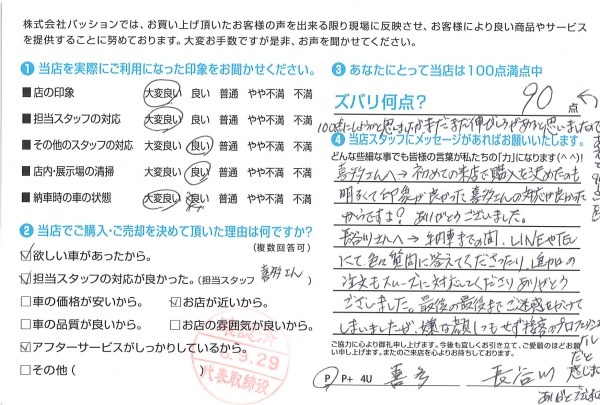 株式会社パッションでは、お買い上げ頂いたお客様の声を出来る限り現場に反映させ、お客様により良い商品やサービス
を提供することに努めております。大変お手数ですが是非、お声を聞かせてください。
❶当店を実際にご利用になった印象をお聞かせください。
■店の印象 大変良い 良い 普通 やや不満 不満
■担当スタッフの対応 大変良い 良い 普通 やや不満 不満
■その他のスタッフの対応 大変良い 良い 普通 やや不満 不満
■店内・展示場の清掃 大変良い 良い 普通 やや不満 不満
■納車時の車の状態 大変良い 良い 普通 やや不満 不満
❷当店でご購入・ご売却を決めて頂いた理由は何ですか?
(複数回答可)
☑欲しい車があったから。
☑担当スタッフの対応が良かった。(担当スタッフ 喜多さん
□車の価格が安いから。 ☑お店が近いから。
□車の品質が良いから。 □お店の雰囲気が良いから。
☑アフターサービスがしっかりしているから。
□その他(
.9.29
代表取締役
❸あなたにとって当店は100点満点中
ズバリ何点? 90 点
100点にしようと思いましたがまだまだ伸びしろがあると思いますので
❹当店スタッフにメッセージがあればお願いいたします。
どんな些細な事でも皆様の言葉が私たちの「力」になります(^^)!
喜多さんへ→初めての来店で購入を決めたのも
明るくて印象が良かった喜多さんの対応が良かった
からですよ?ありがとうございました。
長谷川さんへ→納車までの間、LINEやTEL
にて色々質問に答えてくださったり、追加の
注文もスムーズに対応してくださりありがとう
ございました。最後の最後までご迷惑をかけて
しまいましたが、嫌な顔1つもせず接客のプロフェッショナル
だと
感じま
ご協力に心より御礼申し上げます。今後も宜しくお引き立て、ご愛顧のほどお願
い申し上げます。またのご来店を心よりお待ちしております。
P P+ 4U 喜多 長谷川